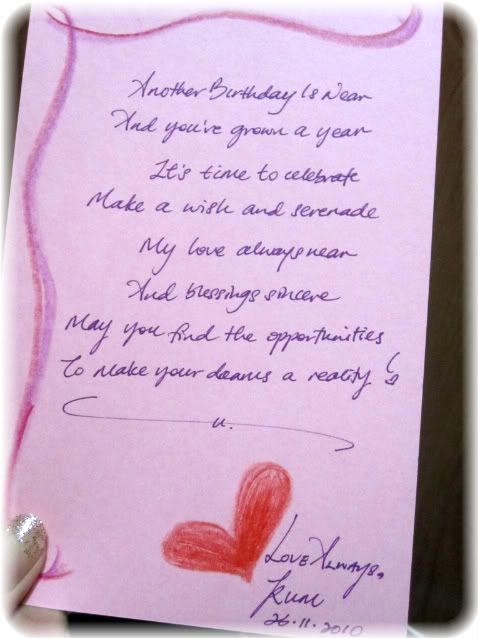 Another Birthday is Near
And you've grown a year
It's time to celebrate
Make a wish and serenade
My love always near
And blessings sincere
May you find the opportunities
To make your dreams a reality
Love Always,
26.11.2010